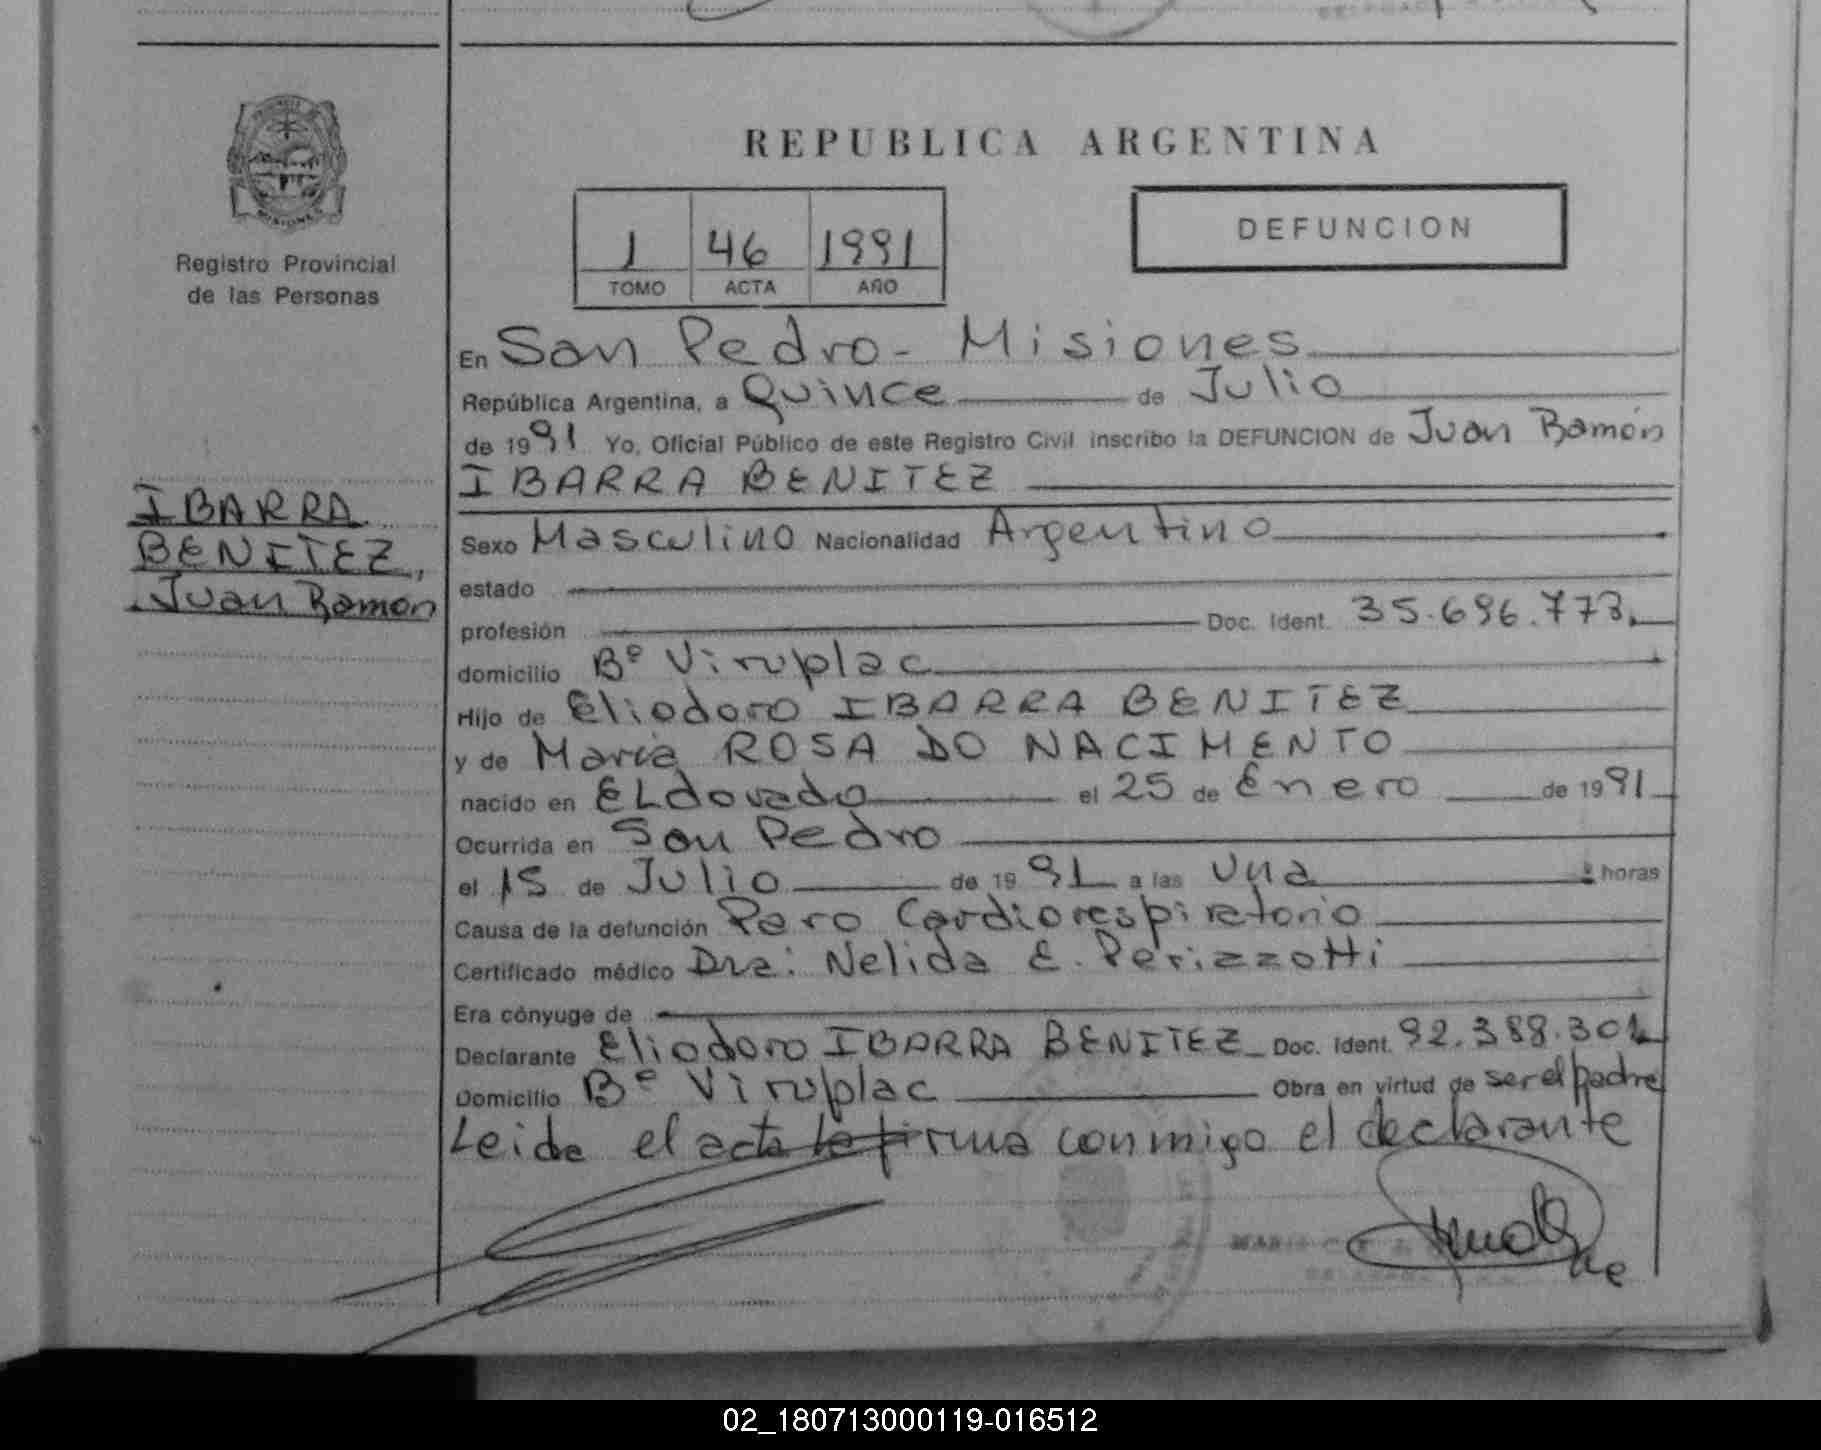 REPUBLICA ARGENTINA
DEFUNCION
1 46 1991
TOMO ACTA AÑO
Registro Provincial
de las Personas
IBARRA
BENITEZ,
Juan Ramón
En San Pedro - Misiones
República Argentina, a Quince de Julio
de 1991 Yo, Oficial Público de este Registro Civil inscribo la DEFUNCION de Juan Ramón
IBARRA BENITEZ
Sexo Masculino Nacionalidad Argentino
estado
profesión Doc. Ident. 35.696.773.
domicilio Bº Viruplac
Hijo de Eliodoro IBARRA BENITEZ
y de María ROSA DO NACIMENTO
nacido en ELdorado el 25 de Enero de 1991
Ocurrida en San Pedro
el 15 de Julio de 1991 a las Una horas
Causa de la defunción Paro Cardiorespiratorio
Certificado médico Dra: Nelida E. Perizzotti
Era cónyuge de
Declarante Eliodoro IBARRA BENITEZ Doc. Ident. 92.388.301
Domicilio Bº Viruplac Obra en virtud de ser el padre
Leida el acta la firma conmigo el declarante
02_180713000119-016512